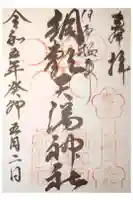 奉拝
綱敷天満神社
令和五年癸卯五月二日